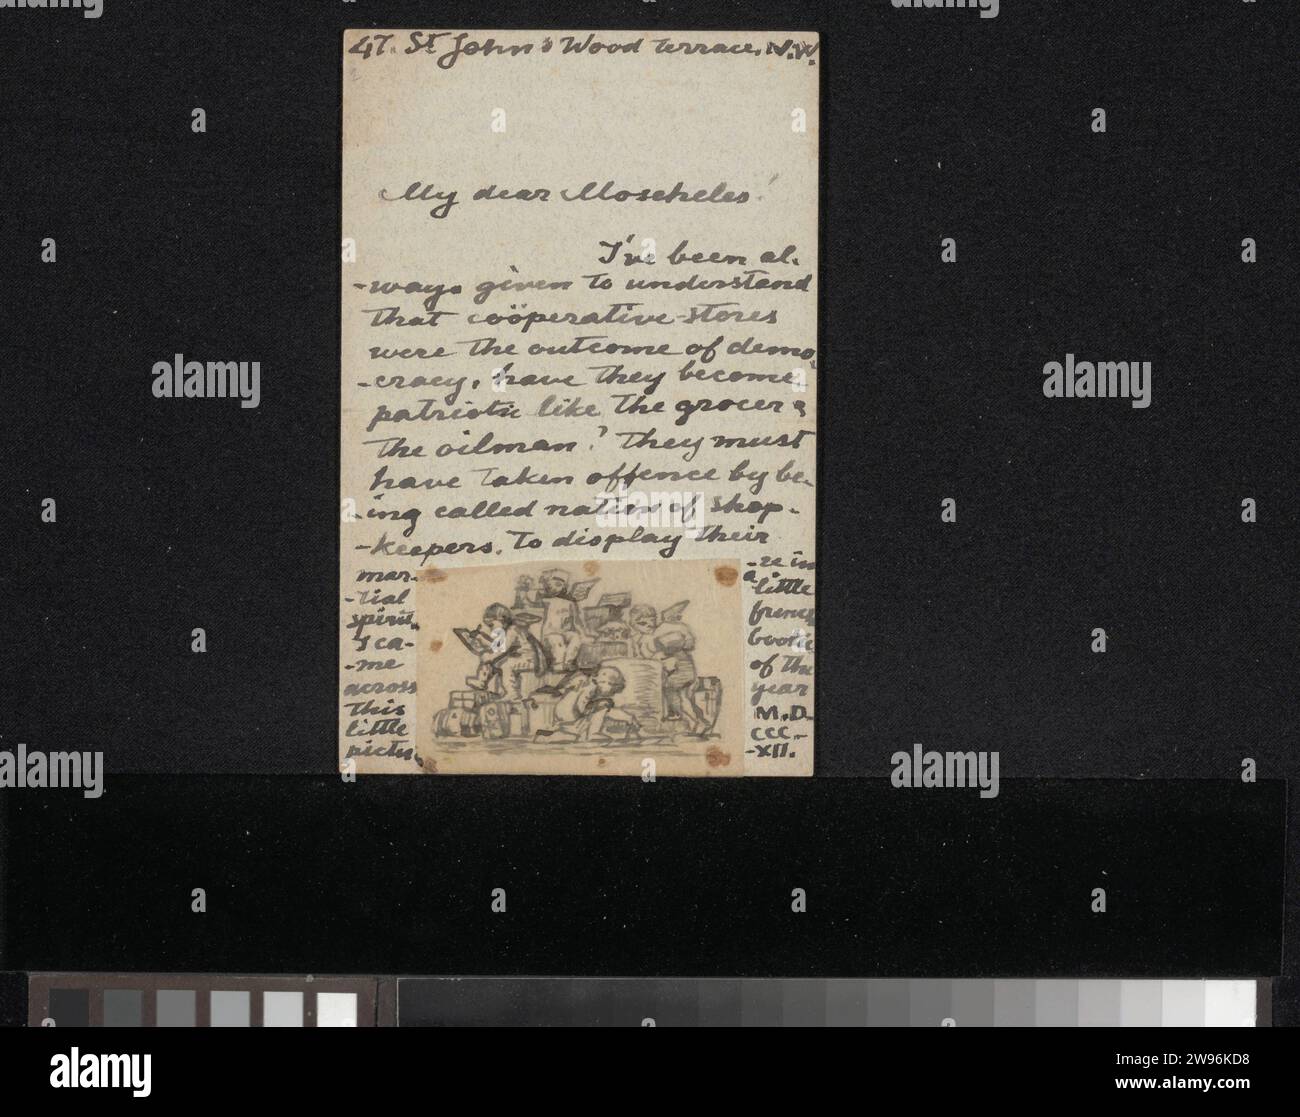 47. St John's Wood Terrace. N.W.
My dear Moscheles!
I've been al-
-ways given to understand
that coöperative-stores
were the outcome of demo-
-cracy. have they become
patriotic like the grocer &
the oilman? They must
have taken offence by be-
-ing called nation of shop-
-keepers. To display their
mar-
-tial
spirit.
I ca-
-me
across
this
little
pictu-
-re in
a little
french
book
of the
year
M.D.
CCC.-
-XII.
alamy
Image ID: 2W96KD8
www.alamy.com